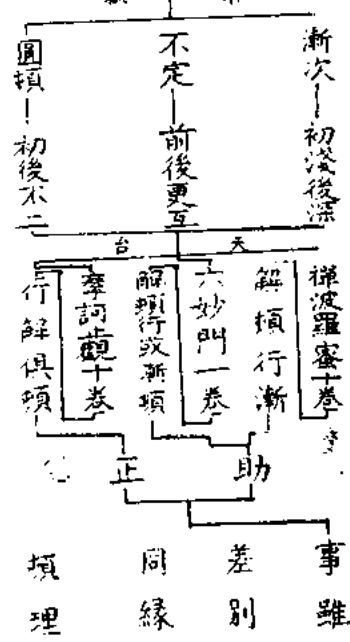 漸次－初淺後深
不定－前後更互
圓頓－初後不二
天台
禪波羅蜜十卷
解頓行漸
六妙門一卷
解頓行或漸頓
摩訶止觀十卷
行解俱頓
助
正
事雖
差別
同緣
頓理